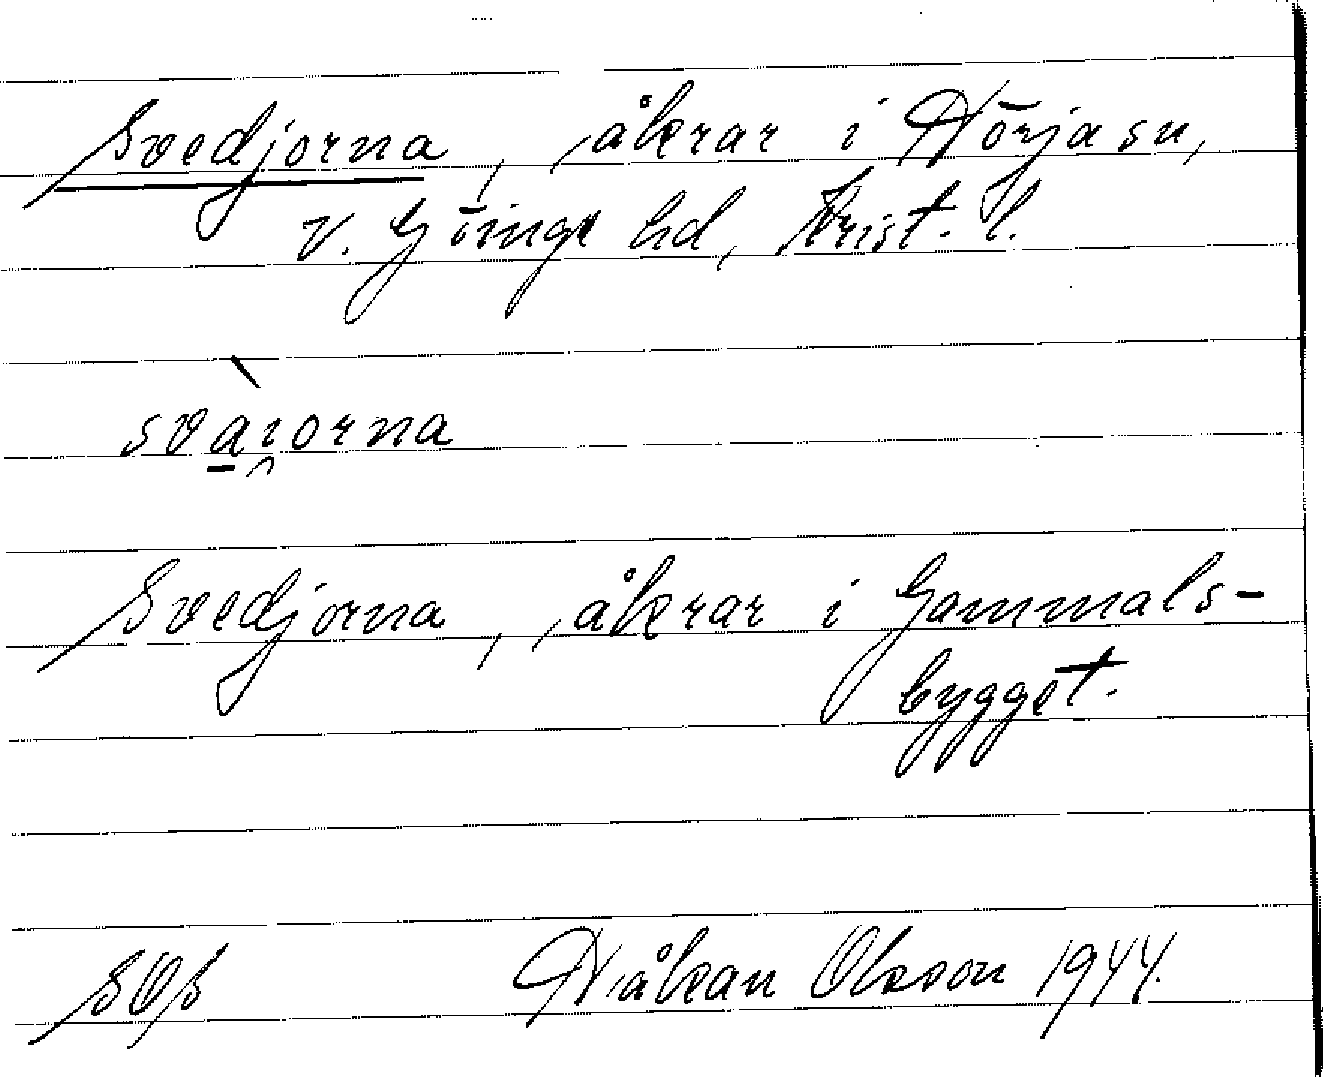 Svedjorna, åkrar i Hörja sn,
V. Göinge hd, Krist. l.
svà̱i̯orna
Svedjorna, åkrar i Gammals-
bygget.
Håkan Olsson 1944.